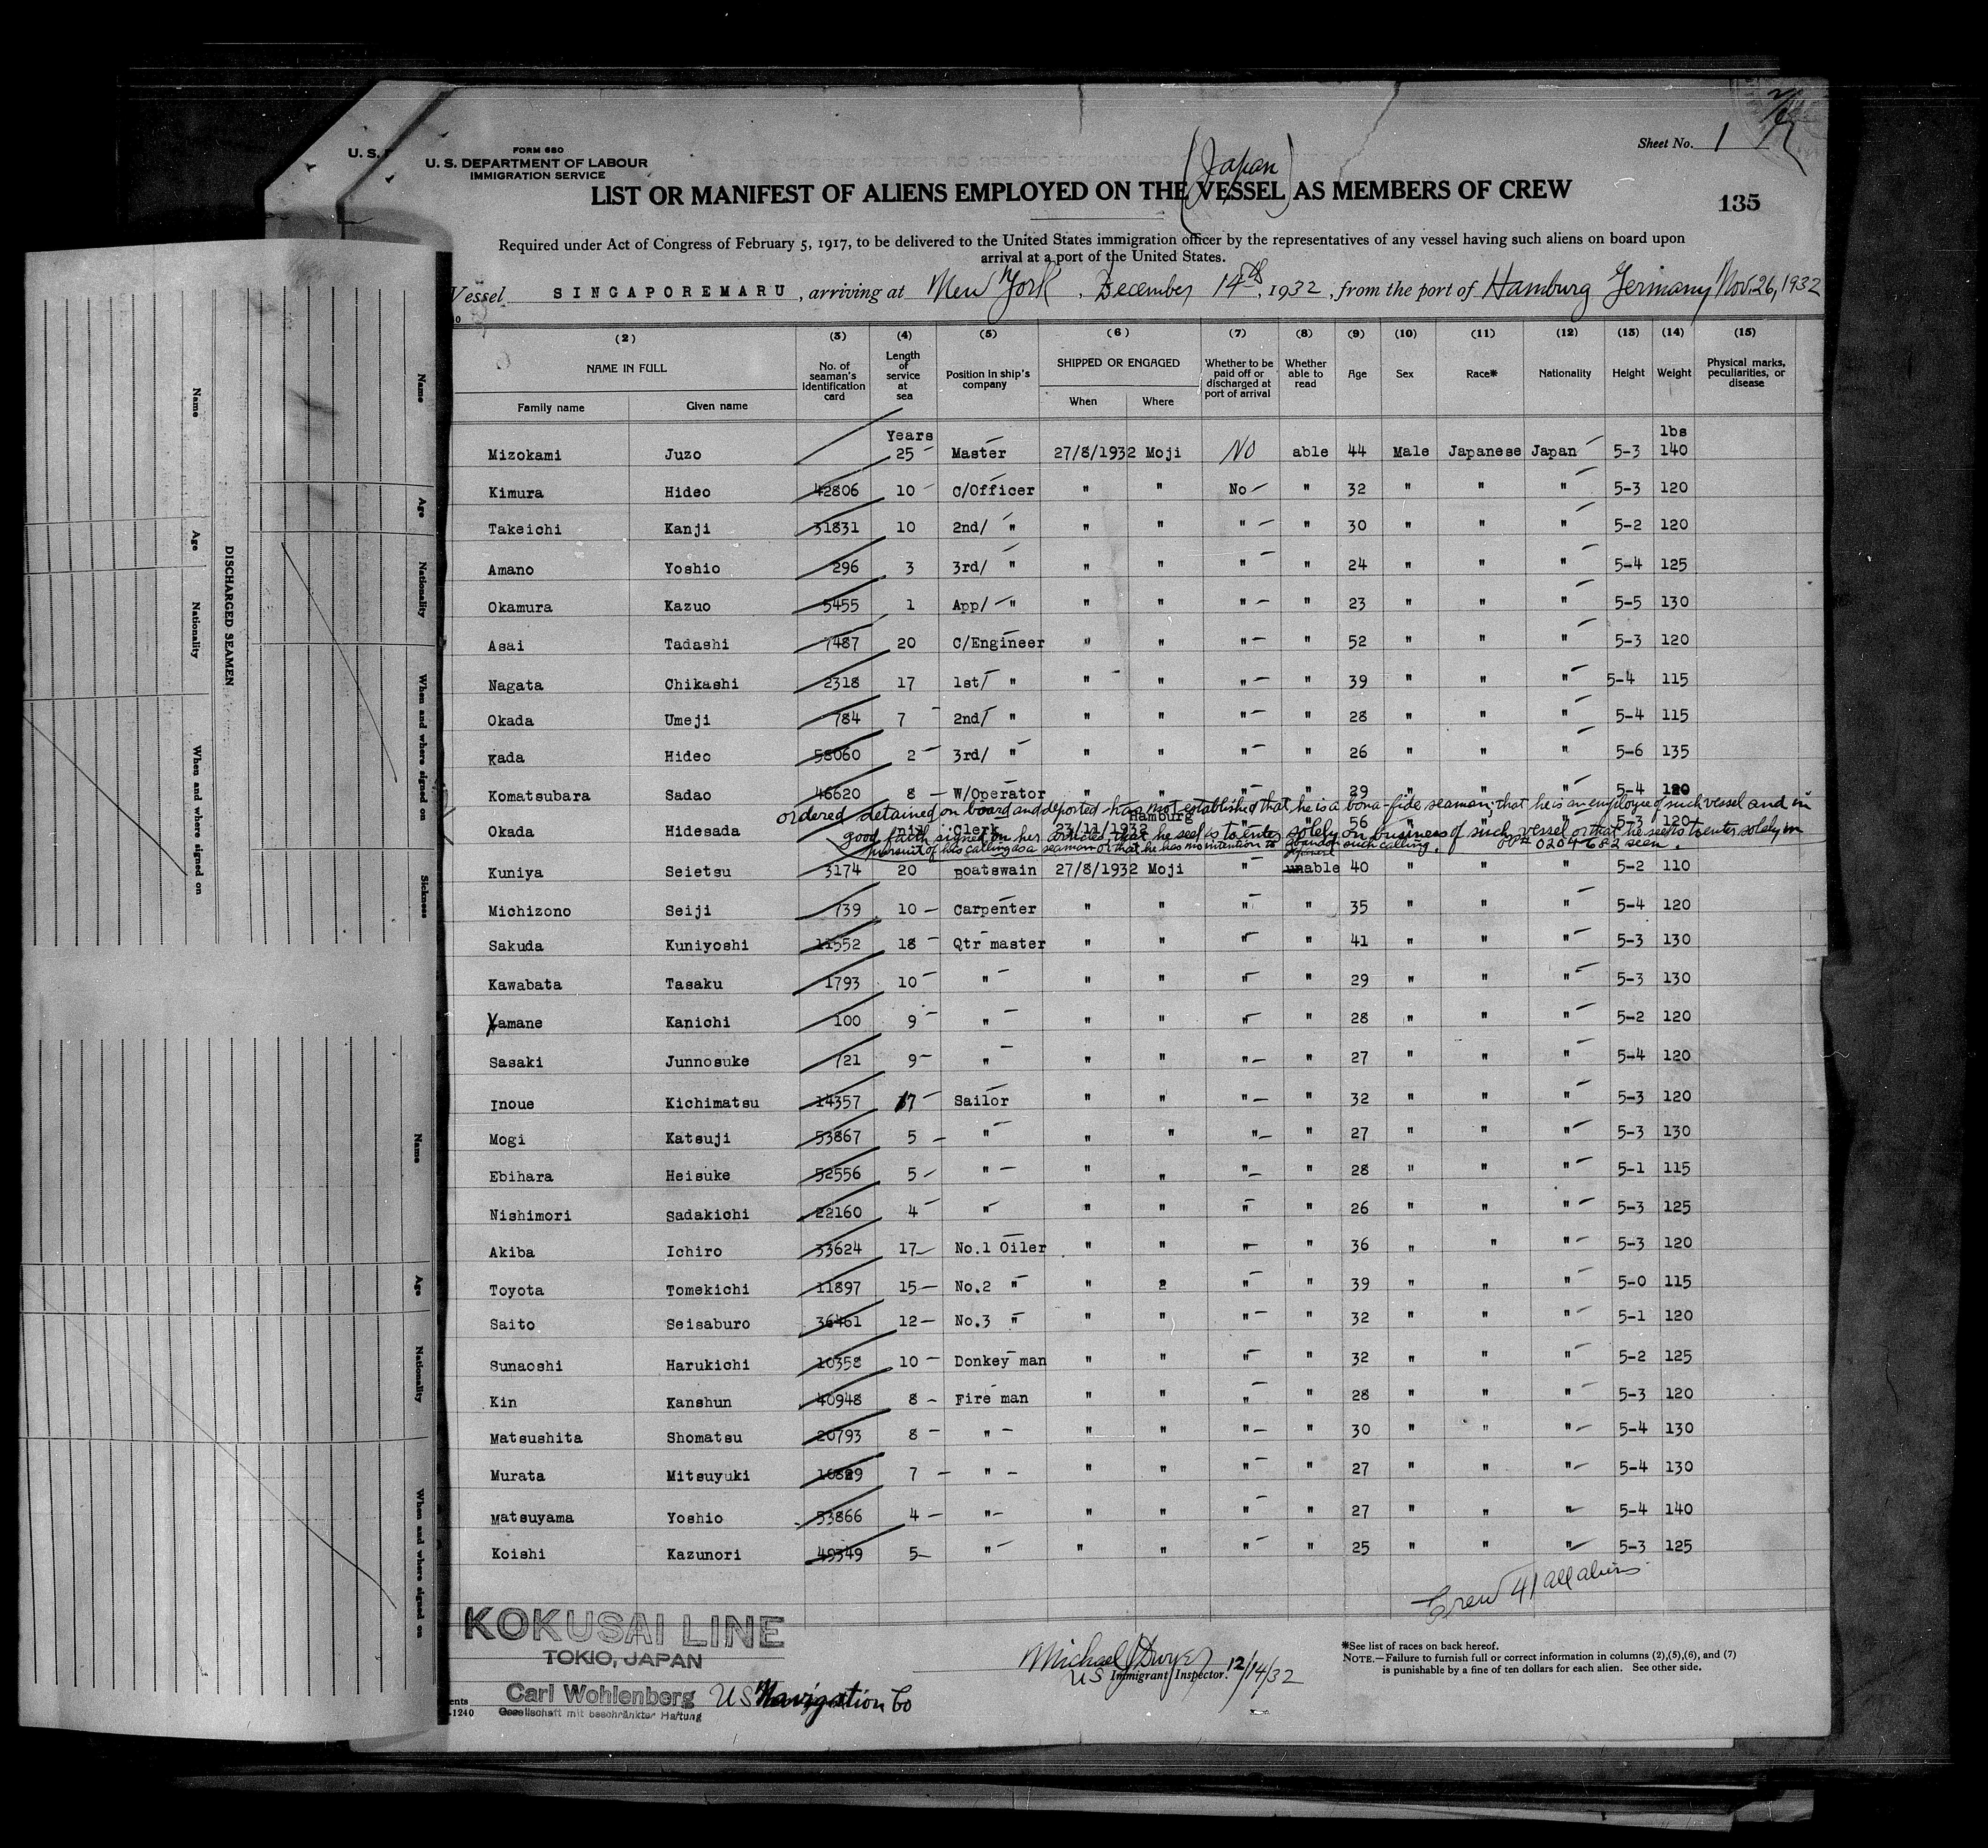 Sheet No. 1
U. S.
FORM 680
U. S. DEPARTMENT OF LABOUR
IMMIGRATION SERVICE
(Japan)
LIST OR MANIFEST OF ALIENS EMPLOYED ON THE VESSEL AS MEMBERS OF CREW
135
Required under Act of Congress of February 5, 1917, to be delivered to the United States immigration officer by the representatives of any vessel having such aliens on board upon
arrival at a port of the United States.
Vessel SINGAPOREMARU, arriving at New York, December 14th, 1932, from the port of Hamburg Germany Nov. 26, 1932
(2) (3) (4) (5) (6) (7) (8) (9) (10) (11) (12) (13) (14) (15)
NAME IN FULL No. of seaman's identification card Length of service at sea Position in ship's company SHIPPED OR ENGAGED Whether to be paid off or discharged at port of arrival Whether able to read Age Sex Race* Nationality Height Weight Physical marks, peculiarities, or disease
Family name Given name When Where
Years lbs
Mizokami Juzo 25 Master 27/8/1932 Moji No able 44 Male Japanese Japan 5-3 140
Kimura Hideo 42806 10 C/Officer " " No " 32 " " " 5-3 120
Takeichi Kanji 31831 10 2nd/ " " " " " 30 " " " 5-2 120
Amano Yoshio 296 3 3rd/ " " " " " 24 " " " 5-4 125
Okamura Kazuo 5455 1 App/ " " " " " 23 " " " 5-5 130
Asai Tadashi 7487 20 C/Engineer " " " " 52 " " " 5-3 120
Nagata Chikashi 2318 17 1st/ " " " " " 39 " " " 5-4 115
Okada Umeji 784 7 2nd/ " " " " " 28 " " " 5-4 115
Kada Hideo 58060 2 3rd/ " " " " " 26 " " " 5-6 135
Komatsubara Sadao 46620 8 W/Operator " " " " 29 " " " 5-4 120
ordered detained on board and deported - has not established that he is a bona-fide seaman; that he is an employee of such vessel and in
Okada Hidesada nil Clerk 23/11/1932 Hamburg " " 56 " " " 5-3 120
good faith signed on her articles, that he seeks to enter solely on business of such vessel or that he seeks to enter solely in
pursuit of his calling as a seaman or that he has no intention to abandon such calling. PP# 0204682 seen.
Kuniya Seietsu 3174 20 Boatswain 27/8/1932 Moji " unable 40 " " " 5-2 110
Michizono Seiji 739 10 Carpenter " " " " 35 " " " 5-4 120
Sakuda Kuniyoshi 11552 18 Qtr master " " " " 41 " " " 5-3 130
Kawabata Tasaku 1793 10 " " " " " 29 " " " 5-3 130
Yamane Kanichi 100 9 " " " " " 28 " " " 5-2 120
Sasaki Junnosuke 721 9 " " " " " 27 " " " 5-4 120
Inoue Kichimatsu 14357 17 Sailor " " " " 32 " " " 5-3 120
Mogi Katsuji 53867 5 " " " " " 27 " " " 5-3 130
Ebihara Heisuke 52556 5 " " " " " 28 " " " 5-1 115
Nishimori Sadakichi 22160 4 " " " " " 26 " " " 5-3 125
Akiba Ichiro 33624 17 No.1 Oiler " " " " 36 " " " 5-3 120
Toyota Tomekichi 11897 15 No.2 " " 2 " " 39 " " " 5-0 115
Saito Seisaburo 36461 12 No.3 " " " " " 32 " " " 5-1 120
Sunaoshi Harukichi 10358 10 Donkey man " " " " 32 " " " 5-2 125
Kin Kanshun 40948 8 Fire man " " " " 28 " " " 5-3 120
Matsushita Shomatsu 20793 8 " " " " " 30 " " " 5-4 130
Murata Mitsuyuki 7 " " " " " 27 " " " 5-4 130
Matsuyama Yoshio 53866 4 " " " " " 27 " " " 5-4 140
Koishi Kazunori 49349 5 " " " " " 25 " " " 5-3 125
Crew 41 all aliens
KOKUSAI LINE
TOKIO, JAPAN
Carl Wohlenberg
Gesellschaft mit beschränkter Haftung
US Navigation Co
Michael J Dwyer
US Immigrant Inspector. 12/14/32
*See list of races on back hereof.
NOTE.—Failure to furnish full or correct information in columns (2),(5),(6), and (7)
is punishable by a fine of ten dollars for each alien. See other side.
ents
-1240
DISCHARGED SEAMEN
Name Age Nationality When and where signed on
Name Age Nationality When and where signed on Sickness
Name Age Nationality When and where signed on